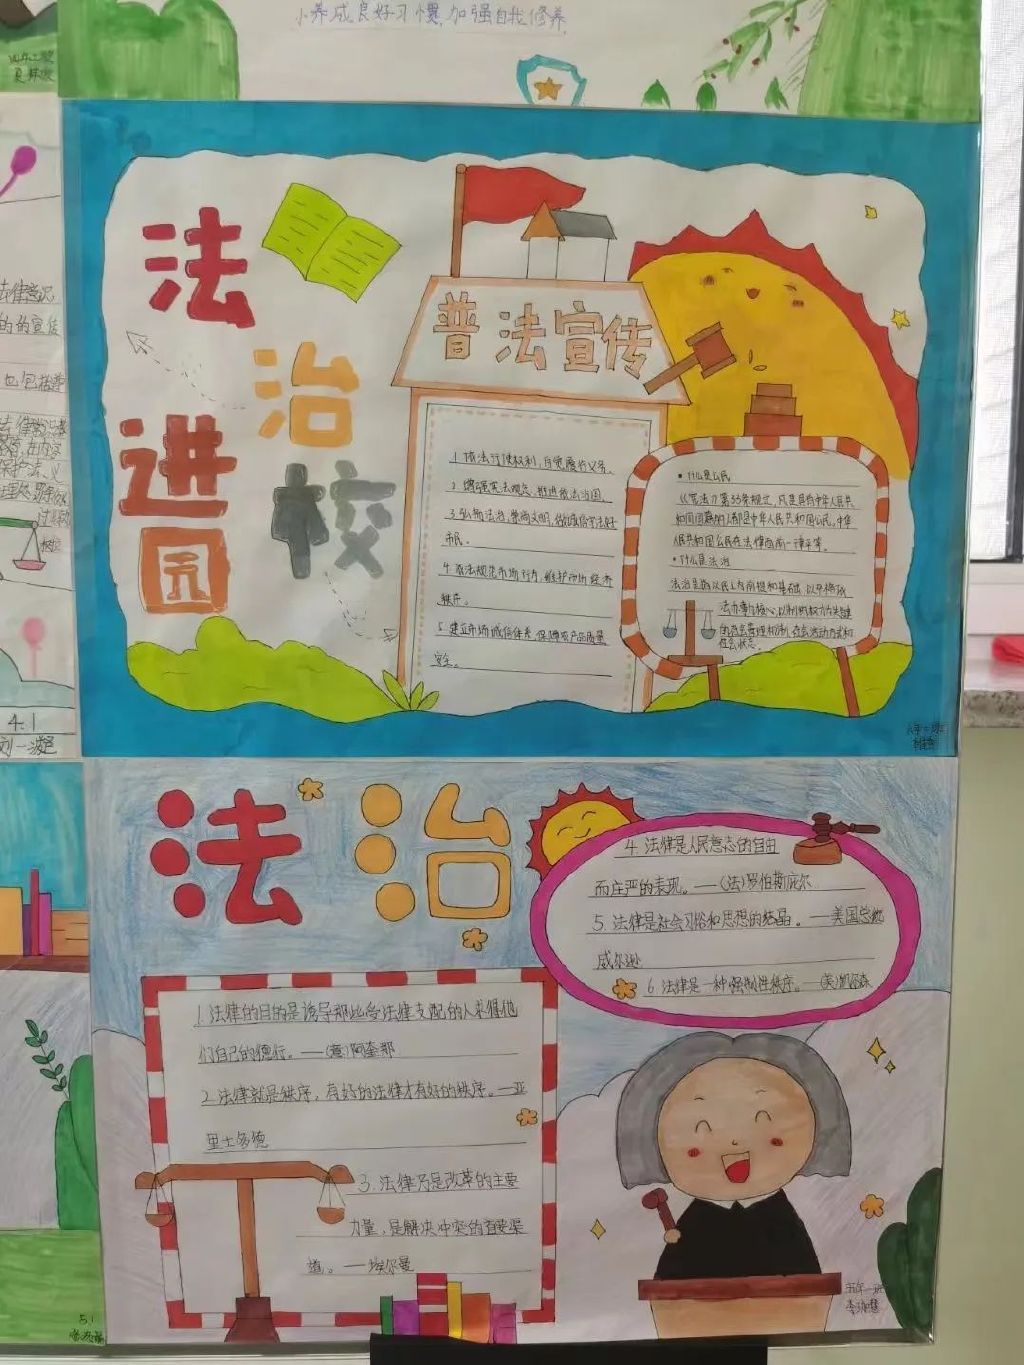 养成良好习惯,加强自我修养
法
治
进
校
园
普法宣传
1.依法行使权利,自觉履行义务。
2.增强宪法观念,推进依法治国。
3.弘扬法治,崇尚文明,做诚信守法好
市民。
4.依法规范市场行为,维护市场经济
秩序。
5.建立市场诚信体系,保障农产品质量
安全。
•什么是公民
《宪法》第33条规定,凡是具有中华人民共
和国国籍的人都是中华人民共和国公民。中华
人民共和国公民在法律面前一律平等。
•什么是法治
法治是指以民主为前提和基础,以严格依
法办事为核心,以制约权力为关键
的社会管理机制,社会活动方式和
社会状态。
法律意识
的宣传
也包括
4.1
刘一
法治
4.法律是人民意志的自由
而庄严的表现。——(法)罗伯斯庇尔
5.法律是社会习俗和思想的结晶。——美国总统
威尔逊
6.法律是一种强制性秩序。——(美)凯尔森
1.法律的目的是诱导那些受法律支配的人求得他
们自己的德行。——(意)阿奎那
2.法律就是秩序,有好的法律才有好的秩序。——亚
里士多德
3.法律乃是改革的主要
力量,是解决冲突的首要渠
道。——埃尔曼
五年一班
5.1